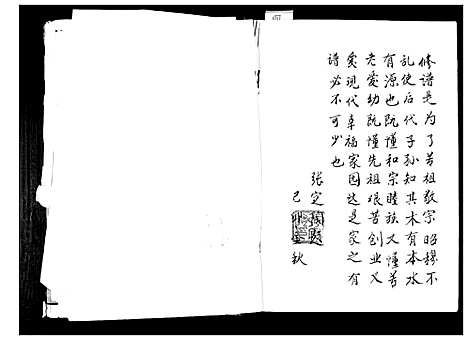 修谱是为了尊祖敬宗昭穆不
乱使后代子孙知其木有本水
有源也既懂和宗睦族又懂尊
老爱幼既懂先祖艰苦创业又
爱现代幸福家园这是家之有
谱必不可少也
张定
己 秋